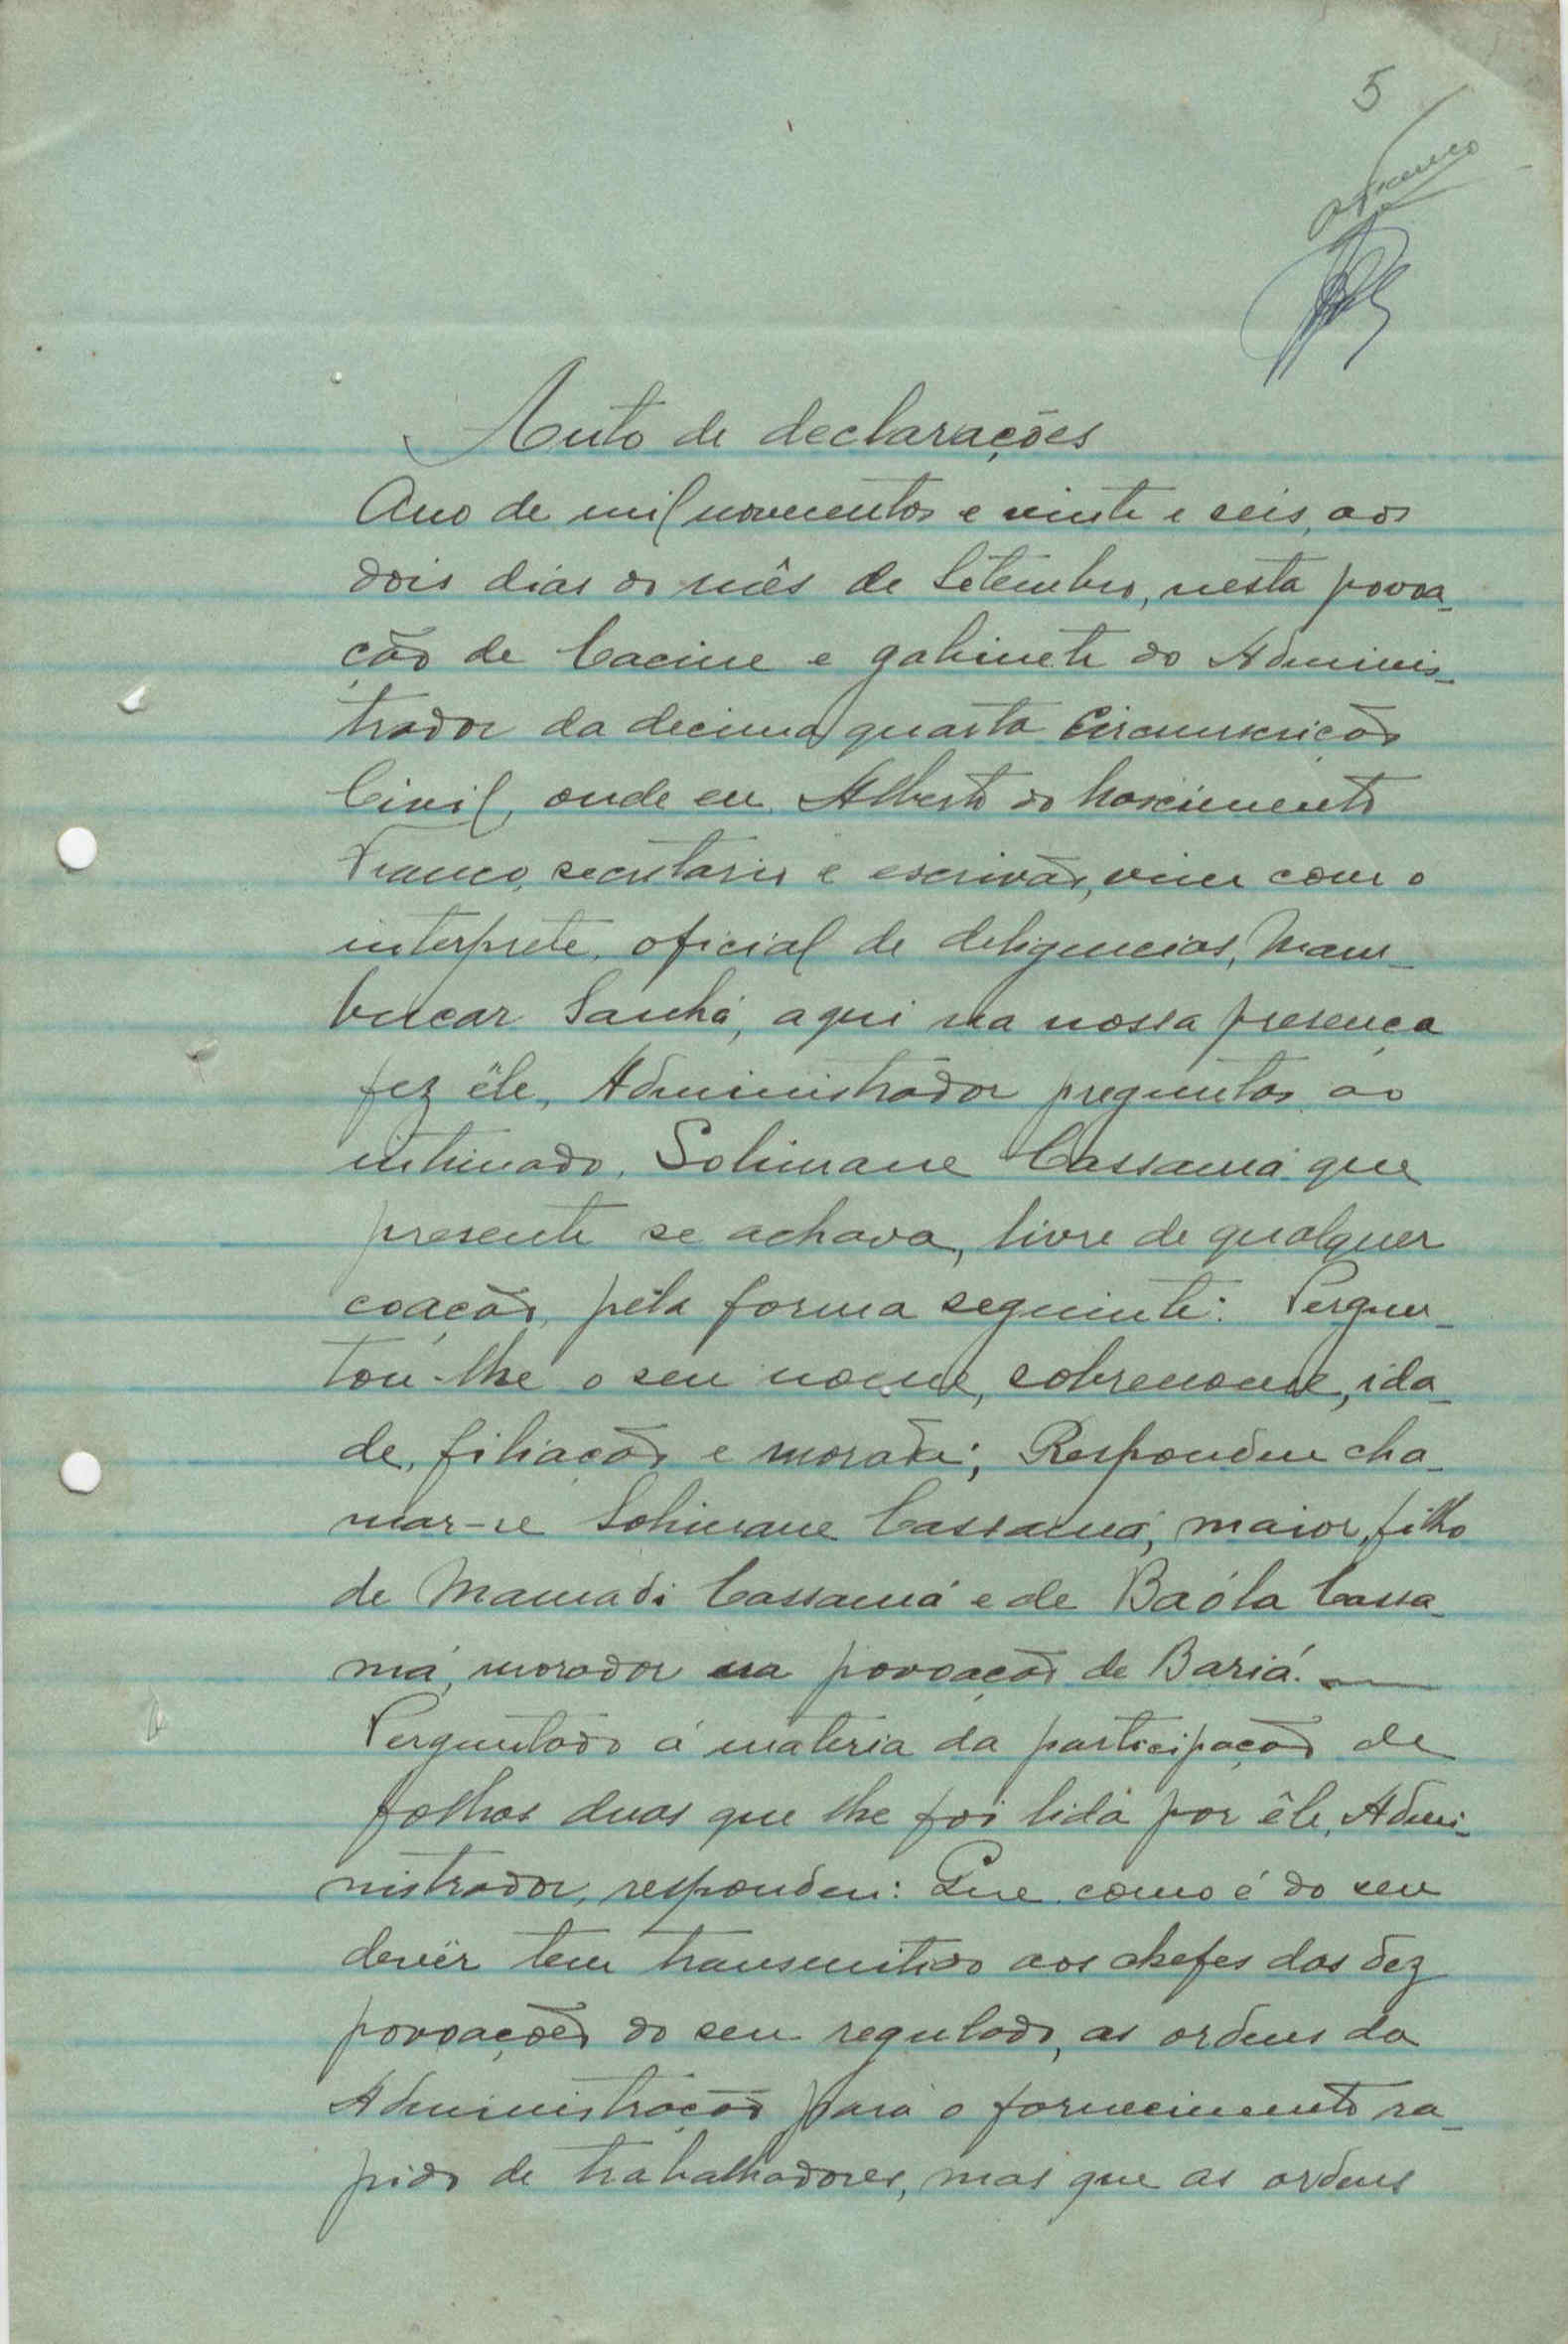 5
Franco
Auto de declarações
Ano de mil novecentos e vinte e seis, aos
dois dias do mês de Setembro, nesta povoa-
ção de Cacine e gabinete do Adminis-
trador da decima quarta Circunscrição
Civil, onde eu Alberto do Nascimento
Franco, secretario e escrivão, vim com o
interprete, oficial de deligencias, Mam-
bucar Sanhá, aqui na nossa presença
fez êle, Administrador preguntas ao
intimado, Solimane Cassamá que
presente se achava, livre de qualquer
coação, pela forma seguinte: Pergun-
tou-lhe o seu nome, sobrenome, ida-
de, filiação e morada; Respondeu cha-
mar-se Solimane Cassamá, maior, filho
de Mamadi Cassamá e de Baóla Cassa-
má, morador na povoação de Bariá.
Perguntado á materia da participação de
folhas duas que lhe foi lida por êle, Admi-
nistrador, respondeu: Que como é do seu
devêr tem transmitido aos chefes das dez
povoações do seu regulado, as ordens da
Administração para o fornecimento ra-
pido de trabalhadores, mas que as ordens